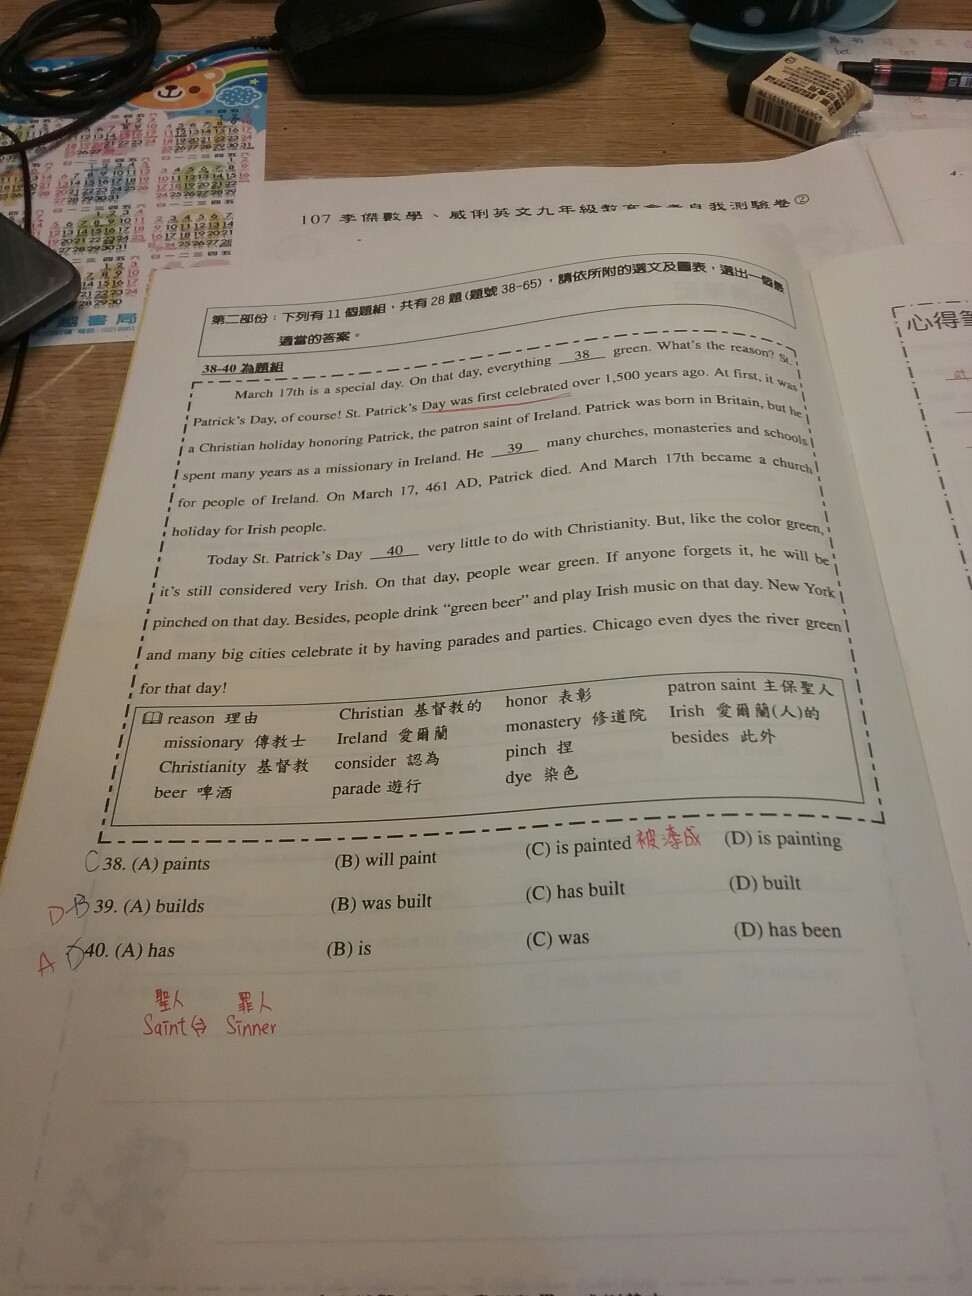 107 李傑數學、威俐英文九年級教育會考自我測驗卷②
第二部份：下列有 11 個題組，共有 28 題(題號 38-65)，請依所附的選文及圖表，選出一個最
適當的答案。
38-40 為題組
March 17th is a special day. On that day, everything 38 green. What's the reason? St.
Patrick's Day, of course! St. Patrick's Day was first celebrated over 1,500 years ago. At first, it was
a Christian holiday honoring Patrick, the patron saint of Ireland. Patrick was born in Britain, but he
spent many years as a missionary in Ireland. He 39 many churches, monasteries and schools
for people of Ireland. On March 17, 461 AD, Patrick died. And March 17th became a church
holiday for Irish people.
Today St. Patrick's Day 40 very little to do with Christianity. But, like the color green,
it's still considered very Irish. On that day, people wear green. If anyone forgets it, he will be
pinched on that day. Besides, people drink “green beer” and play Irish music on that day. New York
and many big cities celebrate it by having parades and parties. Chicago even dyes the river green
for that day!
reason 理由 Christian 基督教的 honor 表彰 patron saint 主保聖人
missionary 傳教士 Ireland 愛爾蘭 monastery 修道院 Irish 愛爾蘭(人)的
Christianity 基督教 consider 認為 pinch 捏 besides 此外
beer 啤酒 parade 遊行 dye 染色
C 38. (A) paints (B) will paint (C) is painted 被漆成 (D) is painting
D B 39. (A) builds (B) was built (C) has built (D) built
A 40. (A) has (B) is (C) was (D) has been
聖人 罪人
Saint ⇔ Sinner
心得筆
書局